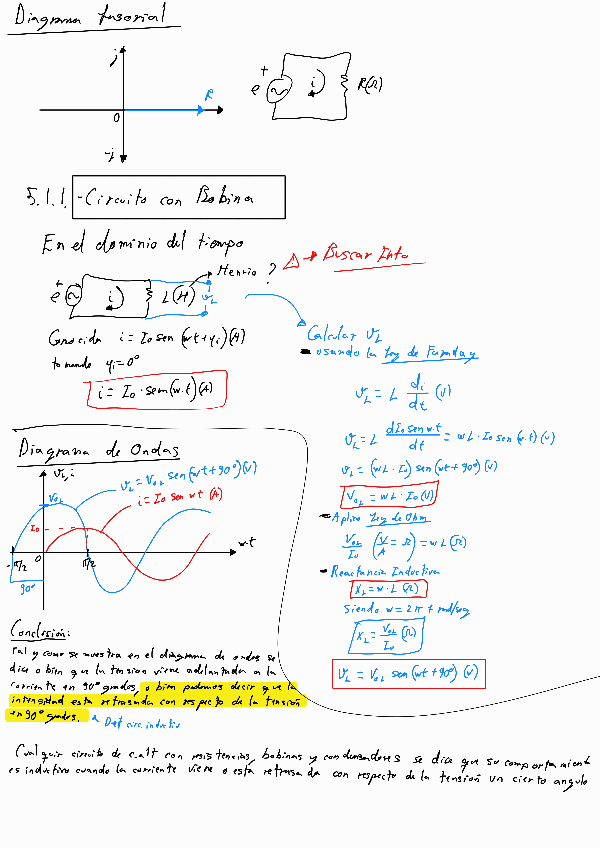 Diagrama fasorial
j
R
0
-j
e
+
i
R(Ω)
5.1.1. - Circuito con Bobina
En el dominio del tiempo
⚠ → Buscar Info
Henrio ?
e
+
i
L(H)
𝑣L
Conocida i = Io sen (wt + φi) (A)
tomando φi = 0°
i = Io · sen (w·t) (A)
Calcular 𝑣L
- usando la Ley de Faraday
𝑣L = L di/dt (V)
𝑣L = L dIo sen wt/dt = wL · Io sen (w·t) (V)
𝑣L = (wL · Io) sen (wt + 90°) (V)
VoL = wL · Io (V)
- Aplico Ley de Ohm
VoL/Io (V/A = Ω) = wL (Ω)
- Reactancia Inductiva
XL = w · L (Ω)
Siendo w = 2π f rad/seg
XL = VoL/Io (Ω)
𝑣L = VoL sen (wt + 90°) (V)
Diagrama de Ondas
𝑣L, i
𝑣L = VoL sen (wt + 90°) (V)
i = Io sen wt (A)
VoL
Io
0
-π/2
π/2
w·t
90°
Conclusión:
Tal y como se muestra en el diagrama de ondas se
dice o bien que la tension viene adelantada a la
corriente en 90° grados, o bien podemos decir que la
intensidad esta retrasada con respecto de la tensión
en 90° grados.
Def circ. inductivo
Cualquir circuito de c.alt con resistencias, bobinas y condensadores se dice que su comportamient
es inductivo cuando la corriente viene o está retrasada con respecto de la tensión un cierto angulo